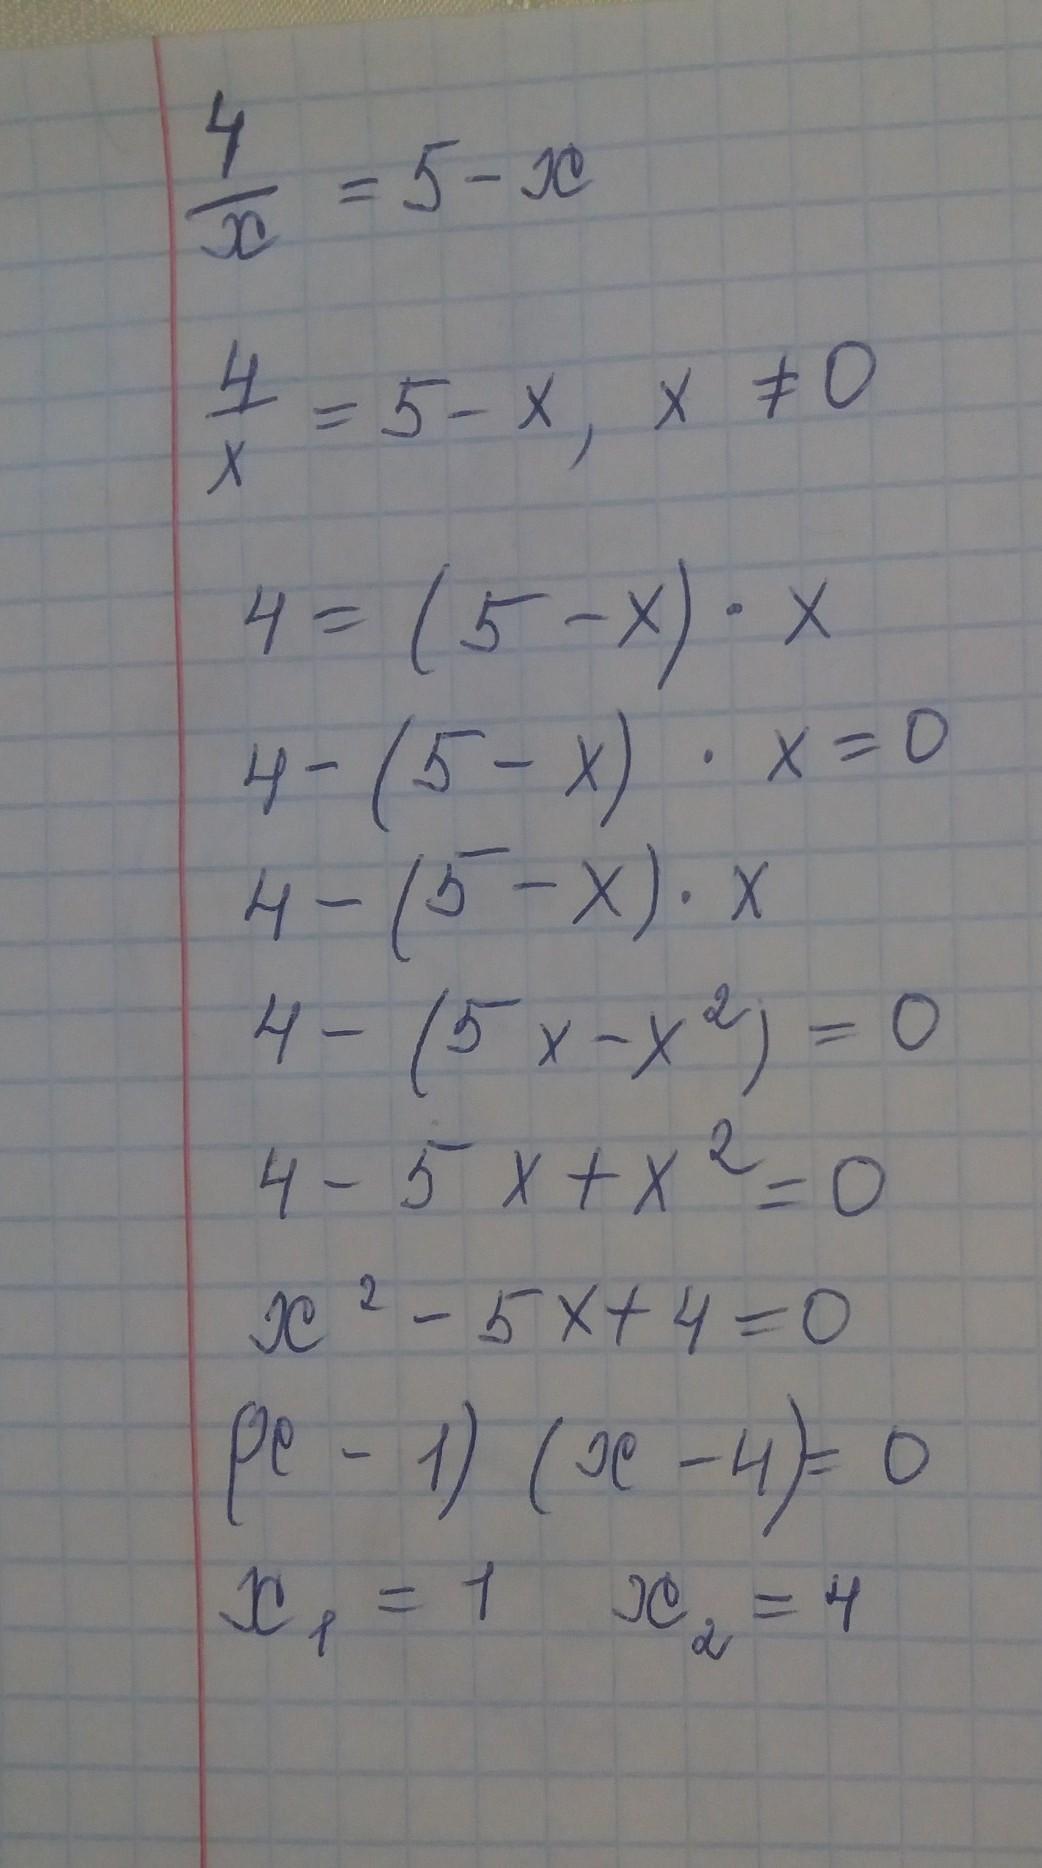 4/x = 5 - x
4/x = 5 - x, x ≠ 0
4 = (5 - x) · x
4 - (5 - x) · x = 0
4 - (5 - x) · x
4 - (5x - x²) = 0
4 - 5x + x² = 0
x² - 5x + 4 = 0
(x - 1) (x - 4) = 0
x₁ = 1 x₂ = 4